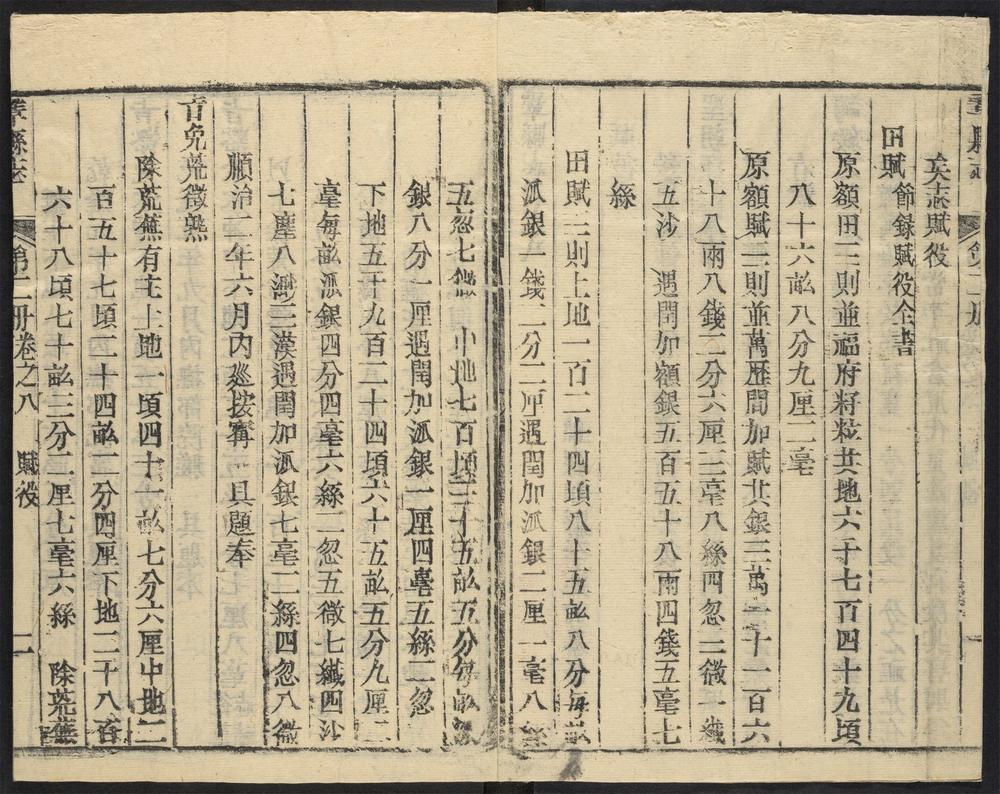 縣志
矣志賦役
田賦 節錄賦役全書
原額田三則並福府將粒共地六千七百四十九頃
八十六畝八分九厘二毫
原額賦三則並萬歷間加賦共銀三萬二十一百六
十八兩八錢二分六厘三毫八絲四忽三微一纖
五沙 遇閏加額銀五百五十八兩四錢五毫七
絲
田賦三則上地一百二十四頃八十五畝八分每畝
派銀一錢二分二厘遇閏加派銀二厘一毫八絲
五忽七微 中地七百頃三十五畝五分每畝派
銀八分一厘遇閏加派銀一厘四毫五絲二忽
下地五千九百二十四頃六十五畝五分九厘二
毫每畝派銀四分四毫六絲二忽五微七纖四沙
七塵八渺三漠遇閏加派銀七毫二絲四忽八微
順治二年六月內巡按寗 具題奉
旨免荒徵熟
除荒蕪有主上地一頃四十一畝七分六厘中地二
百五十七頃二十四畝二分四厘下地二千八百
六十八頃七十畝三分二厘七毫六絲 除荒蕪
縣志 第二冊卷之八 賦役 二